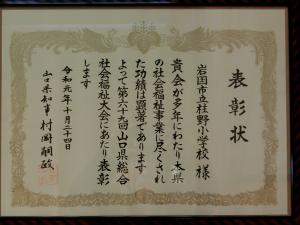 表彰状
岩国市立杭野小学校 様
貴会が多年にわたり本県
の社会福祉事業に尽くされ
た功績は顕著であります
よって第六十九回山口県総合
社会福祉大会にあたり表彰
します
令和元年十月二十四日
山口県知事 村岡嗣政